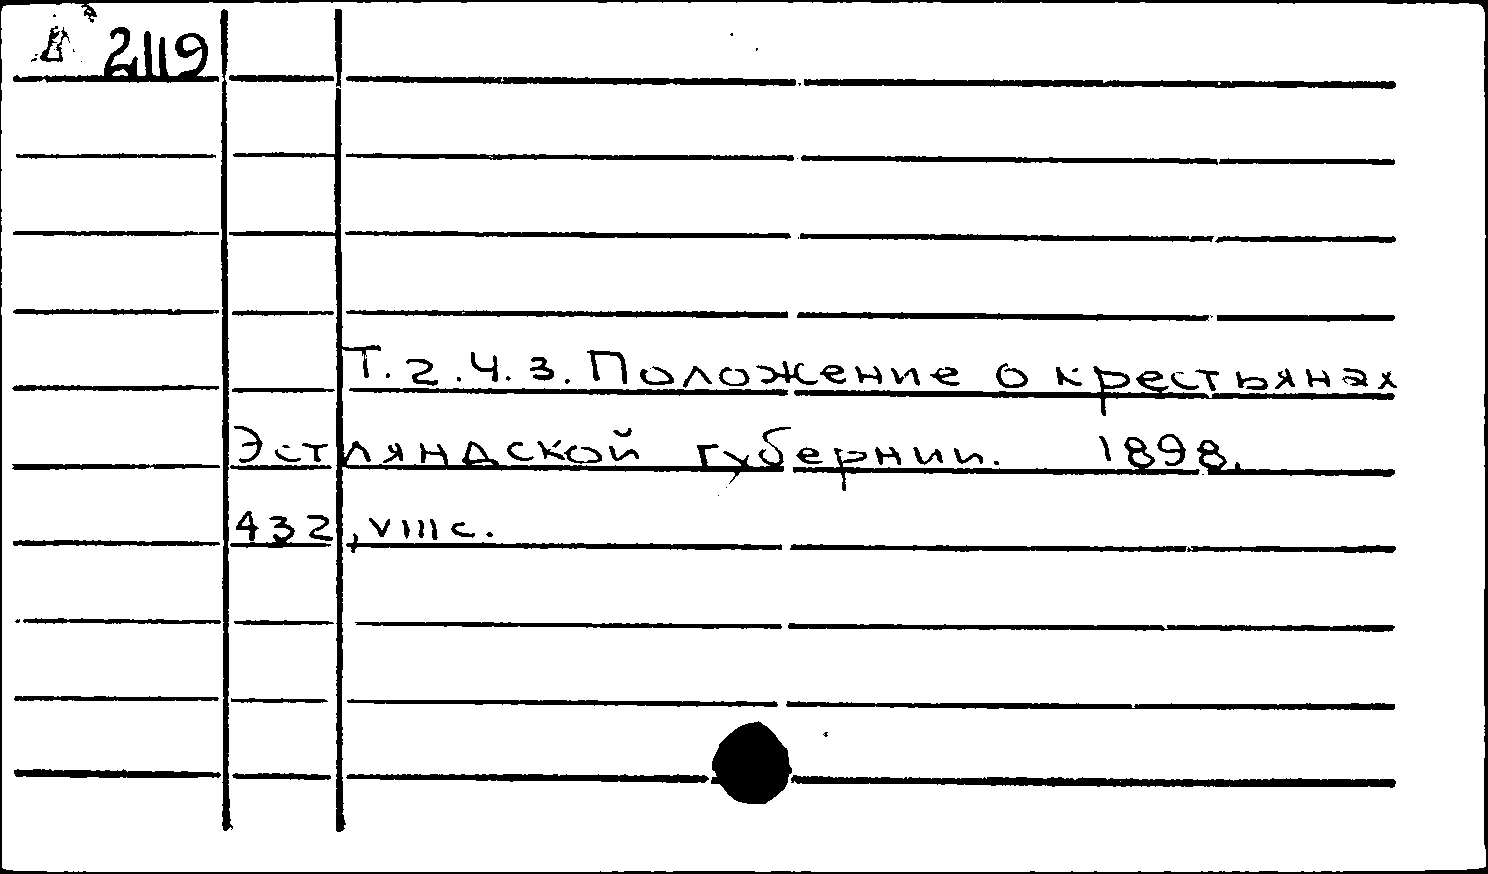 2119
Т.2.Ч.3. Положение о крестьянах
Эстляндской губернии. 1898.
432, VIII с.